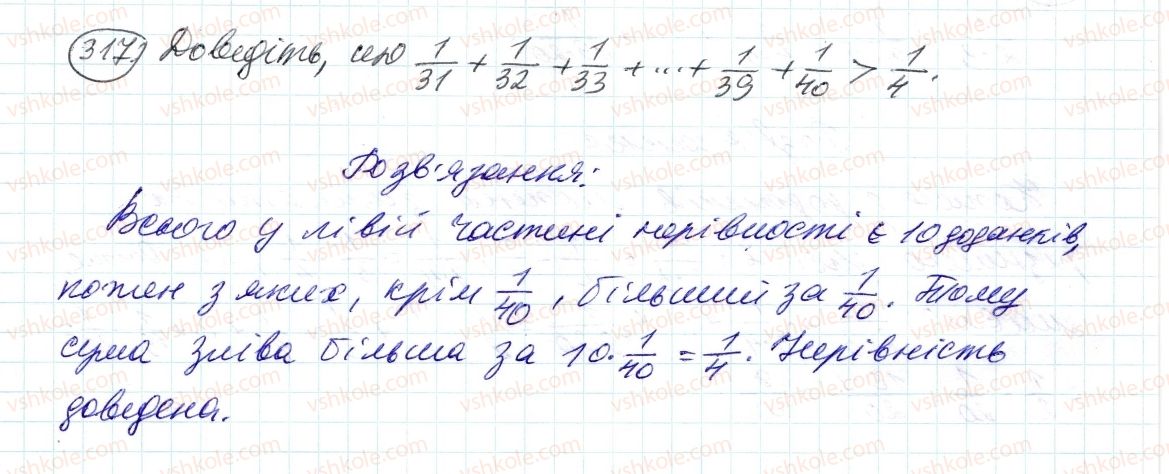 317) Доведіть, що 1/31 + 1/32 + 1/33 + ... + 1/39 + 1/40 > 1/4.
Розв'язання:
Всього у лівій частині нерівності є 10 доданків,
кожен з яких, крім 1/40, більший за 1/40. Тому
сума зліва більша за 10·1/40 = 1/4. Нерівність
доведена.